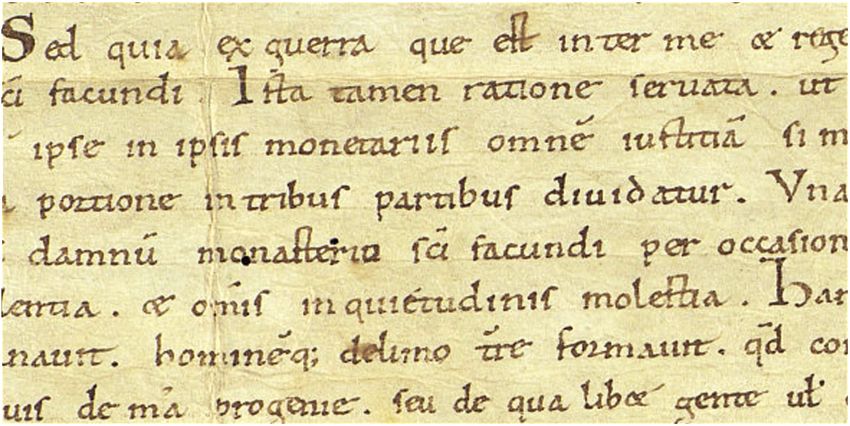 Sed quia ex guerra que est inter me & rege
sc̄i facundi. Ista tamen ratione seruata. ut
ipse in ipsis monetariis omnē iustitiā sim
portione in tribus partibus diuidatur. Vna
damnū monasterio sc̄i facundi per occasion
lentia. & om̄is inquietudinis molestia. Han
nauit. hominēq; de limo t̄re formauit. qd̄ con
uis de mā progenie. seu de qua lib& gente ul̄